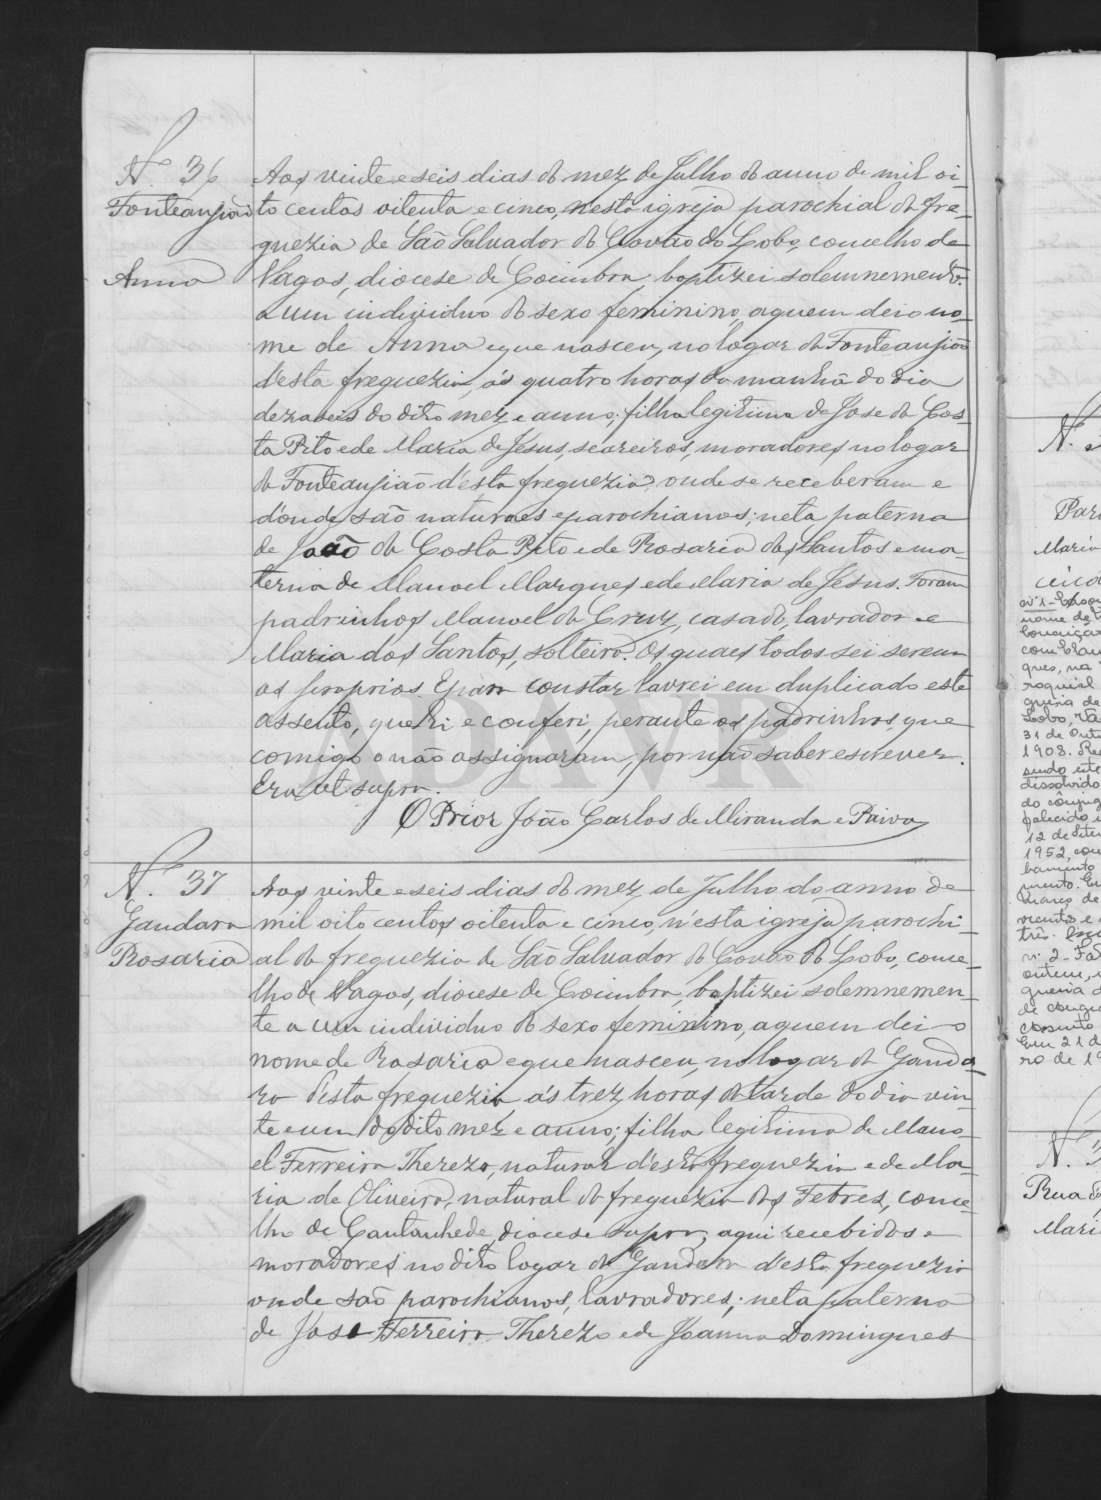 N. 36
Fonteanjião
Anna
Aos vinte e seis dias do mez de Julho do anno de mil oi-
to centos oitenta e cinco, nesta igreja parochial da fre-
guezia de São Salvador do Covão do Lobo, concelho de
Vagos, diocese de Coimbra, baptizei solemnemente
a um individuo do sexo feminino, a quem dei o no-
me de Anna e que nasceu, no logar da Fonteanjião
d'esta freguezia, ás quatro horas da manhã do dia
dezaseis do dito mez e anno; filha legitima de Jose da Cos-
ta Pito e de Maria de Jesus, seareiros, moradores no logar
da Fonteanjião d'esta freguezia, onde se receberam e
d'onde são naturaes e parochianos; neta paterna
de João da Costa Pito e de Rosaria dos Santos e ma-
terna de Manoel Marques e de Maria de Jesus. Foram
padrinhos Manoel da Cruz, casado, lavrador e
Maria dos Santos, solteira. Os quaes todos sei serem
os proprios. E para constar lavrei em duplicado este
assento, que li e conferi, perante os padrinhos, que
comigo o não assignaram, por não saber escrever.
Era ut supra.
O Prior João Carlos de Miranda e Paiva
N. 37
Gandara
Rosaria
Aos vinte e seis dias do mez de Julho do anno de
mil oito centos oitenta e cinco, n'esta igreja parochi-
al da freguezia de São Salvador do Covão do Lobo, conce-
lho de Vagos, diocese de Coimbra, baptizei solemnemen-
te a um individuo do sexo feminino, a quem dei o
nome de Rosaria e que nasceu, no logar da Ganda-
ra d'esta freguezia ás trez horas da tarde do dia vin-
te e um do dito mez e anno; filha legitima de Mano-
el Ferreira Therezo, natural d'esta freguezia e de Ma-
ria de Oliveira, natural da freguezia dos Febres, conce-
lho de Cantanhede, diocese supra, aqui recebidos e
moradores no dito logar da Gandara d'esta freguezia
onde são parochianos, lavradores; neta paterna
de José Ferreira Therezo e de Joanna Domingues
ADAVR
N.
Par
Maria
nome de
31 de Out
1908.
dissolvido
falecido
12 de Sete
1952, con
bamento
Março de
três.
n. 2. Fa
ontem,
Em 21 d
ro de 19
N. 3
Rua
Mari